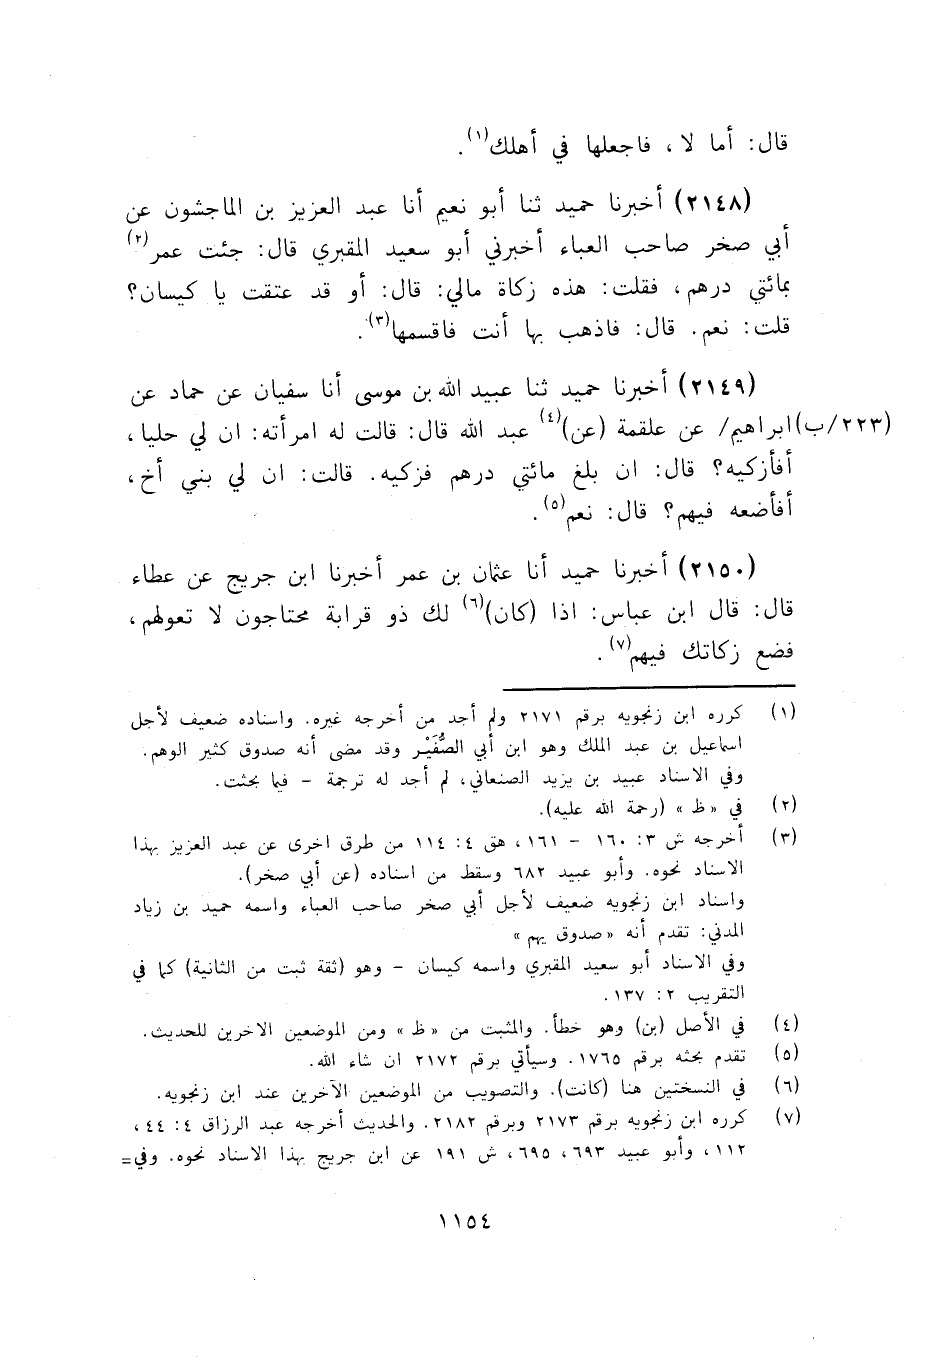 قال: أما لا، فاجعلها في أهلك(١).
(٢١٤٨) أخبرنا حميد ثنا أبو نعيم أنا عبد العزيز بن الماجشون عن
أبي صخر صاحب العباء أخبرني أبو سعيد المقبري قال: جئت عمر(٢)
بمائتي درهم، فقلت: هذه زكاة مالي: قال: أو قد عتقت يا كيسان؟
قلت: نعم. قال: فاذهب بها أنت فاقسمها(٣).
(٢١٤٩) أخبرنا حميد ثنا عبيد الله بن موسى أنا سفيان عن حماد عن
(٢٢٣/ب) ابراهيم/ عن علقمة (عن)(٤) عبد الله قال: قالت له امرأته: ان لي حليا،
أفأزكيه؟ قال: ان بلغ مائتي درهم فزكيه. قالت: ان لي بني أخ،
أفأضعه فيهم؟ قال: نعم(٥).
(٢١٥٠) أخبرنا حميد أنا عثمان بن عمر أخبرنا ابن جريج عن عطاء
قال: قال ابن عباس: اذا (كان)(٦) لك ذو قرابة محتاجون لا تعولهم،
فضع زكاتك فيهم(٧).
(١) كرره ابن زنجويه برقم ٢١٧١ ولم أجد من أخرجه غيره. واسناده ضعيف لأجل
اسماعيل بن عبد الملك وهو ابن أبي الصُّفَيْر وقد مضى أنه صدوق كثير الوهم.
وفي الاسناد عبيد بن يزيد الصنعاني، لم أجد له ترجمة - فيما بحثت.
(٢) في «ظ» (رحمة الله عليه).
(٣) أخرجه ش ٣: ١٦٠ - ١٦١، هق ٤: ١١٤ من طرق اخرى عن عبد العزيز بهذا
الاسناد نحوه. وأبو عبيد ٦٨٢ وسقط من اسناده (عن أبي صخر).
واسناد ابن زنجويه ضعيف لأجل أبي صخر صاحب العباء واسمه حميد بن زياد
المدني: تقدم أنه «صدوق يهم»
وفي الاسناد أبو سعيد المقبري واسمه كيسان - وهو (ثقة ثبت من الثانية) كما في
التقريب ٢: ١٣٧.
(٤) في الأصل (بن) وهو خطأ. والمثبت من «ظ» ومن الموضعين الاخرين للحديث.
(٥) تقدم بحثه برقم ١٧٦٥. وسيأتي برقم ٢١٧٢ ان شاء الله.
(٦) في النسختين هنا (كانت). والتصويب من الموضعين الآخرين عند ابن زنجويه.
(٧) كرره ابن زنجويه برقم ٢١٧٣ وبرقم ٢١٨٢. والحديث أخرجه عبد الرزاق ٤: ٤٤،
١١٢، وأبو عبيد ٦٩٣، ٦٩٥، ش ١٩١ عن ابن جريج بهذا الاسناد نحوه. وفي=
١١٥٤